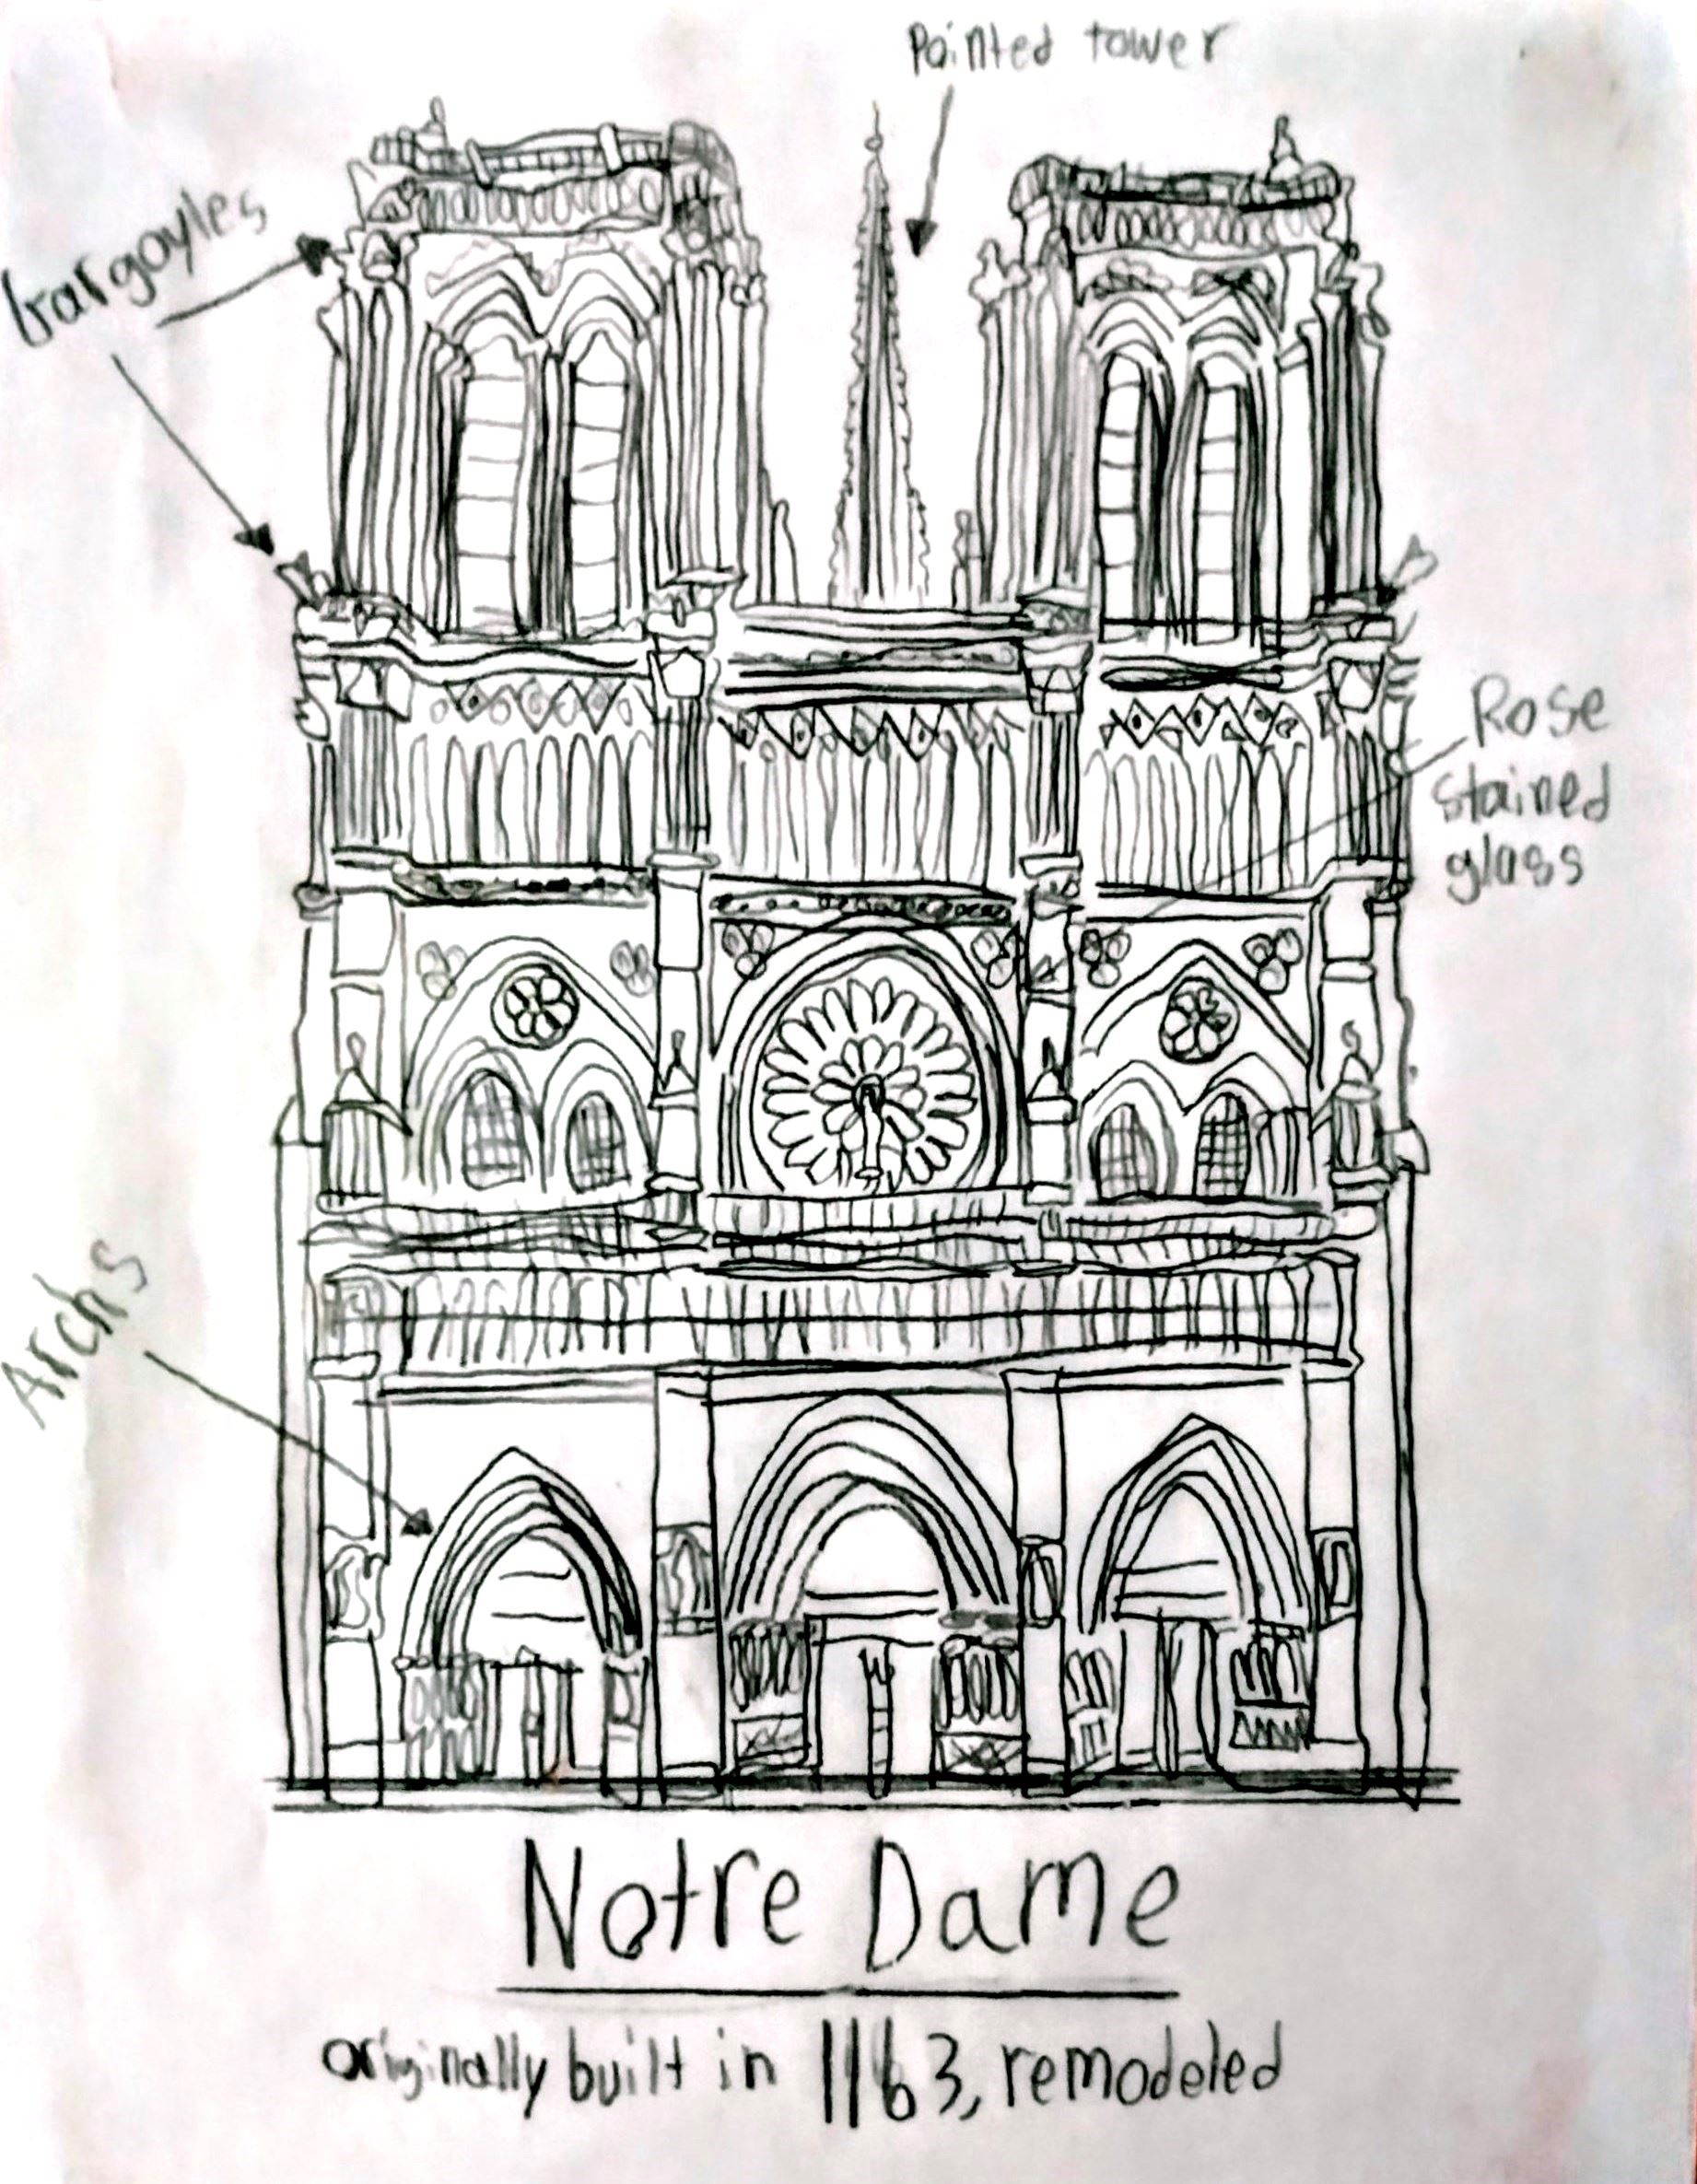 Pointed tower
Gargoyles
Rose
stained
glass
Archs
Notre Dame
originally built in 1163, remodeled